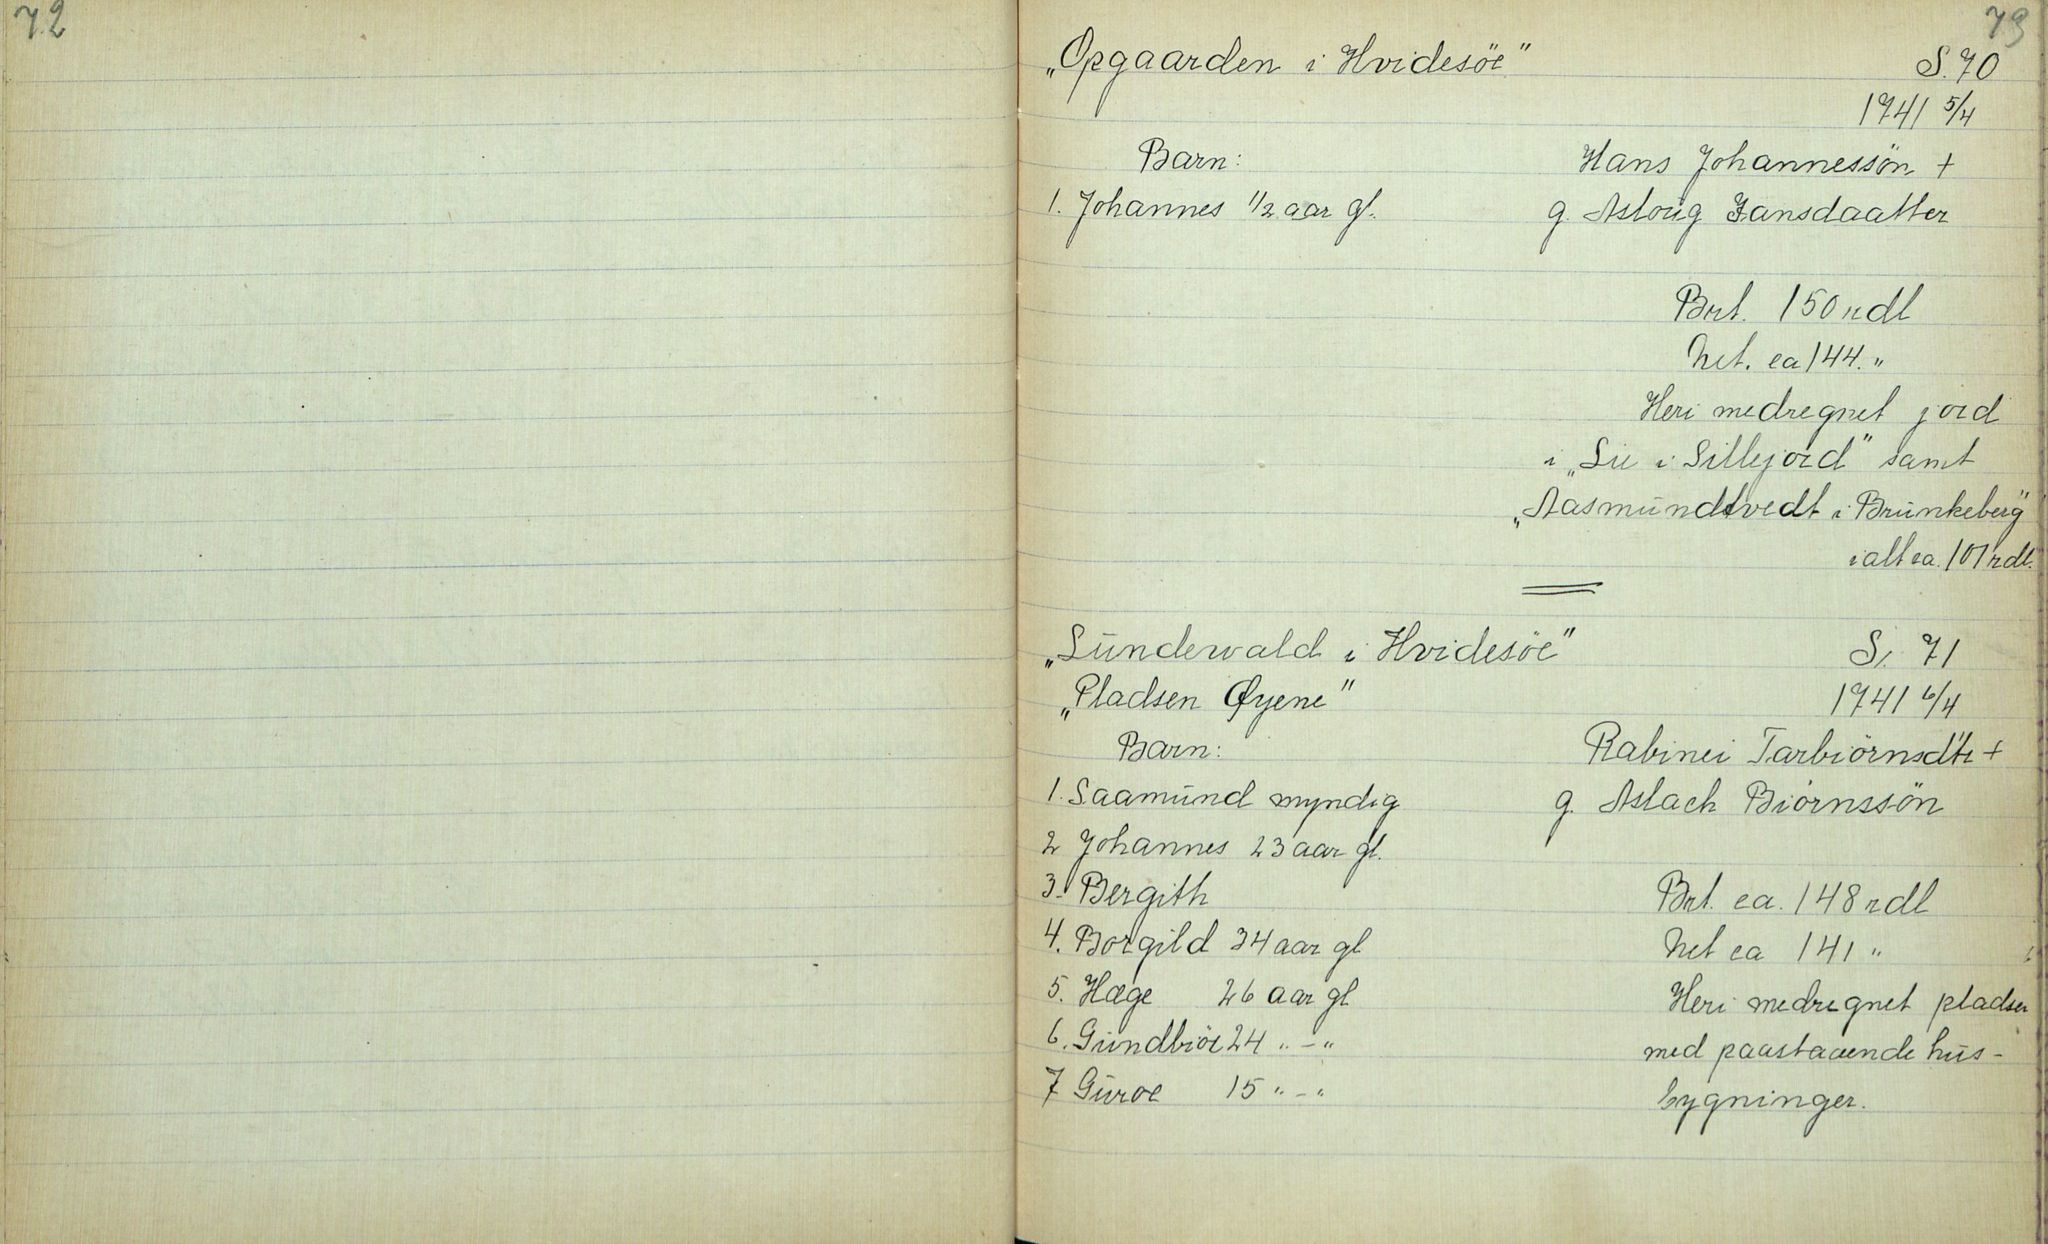 72
73
„Opgaarden i Hvidesöe"
S. 70
1741 5/4
Barn:
Hans Johannessön +
1. Johannes 1/2 aar gl.
g. Asloug Jansdaatter
Brt. 150 rdl
Net. ca 144. "
Heri medregnet jord
i „Lie i Sillejord" samt
„Aasmundtvedt i Brunkeberg"
ialt ca. 101 rdl.
„Sundewald i Hvidesöe"
S. 71
„Pladsen Øyene"
1741 6/4
Barn:
Rabinei Tarbiörnsdtr +
1. Saamund myndig
g. Aslach Biörnssön
2 Johannes 23 aar gl.
3. Bergith
Brt. ca. 148 rdl
4. Borgild 34 aar gl
Net ca 141 "
5. Hæge 26 aar gl
Heri medregnet pladsen
6. Gundbiör 24 " - "
med paastaaende hus-
7 Guroe 15 " - "
bygninger.